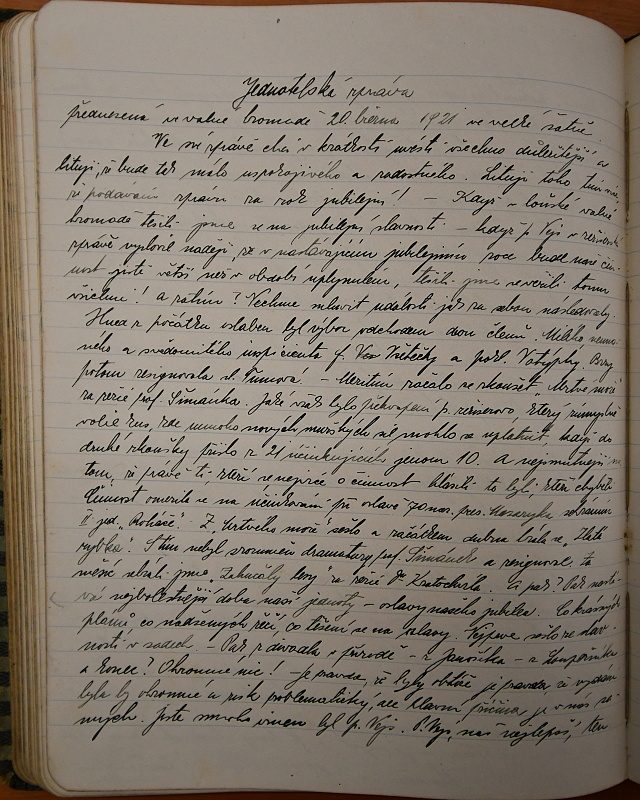 Jednatelská zpráva
přednesená ve valné hromadě 20. března 1921 ve velké šatně.
Ve své zprávě chci v krátkosti uvésti všechno důležitější a
lituji, že bude tak málo uspokojivého a radostného. Lituji toho tím více,
že podávám zprávu za rok jubilejní! – Když v loňské valné
hromadě těšili jsme se na jubilejní slavnosti – když p. Vejs v režisérské
zprávě vyslovil naději, že v nastávajícím jubilejním roce bude naše čin-
nost jistě větší než v období uplynulém, těšili jsme se všichni tomu
všichni! a zatím? Nechme mluvit události jak za sebou následovaly.
Hned z počátku oslaben byl výbor odchodem dvou členů. Milého neuna-
veného a svědomitého inspicienta p. a pokl. Brzy
potom resignovala sl. Tůmová. – Mezitím začalo se zkoušet „Mrtvé moře“
za režie prof. Šimánka. Jaké však bylo překvapení p. režisérovo, který zúmyslně
volil kus, kde mnoho nových mužských sil mohlo se uplatnit, když do
druhé zkoušky přišlo z 21 účinkujících jenom 10. A nejsmutnější na
tom, že právě ti kteří se nejvíce o činnost hlásili to byli, kteří chyběli.
Činnost omezila se na účinkování při oslavě 70 nar. pres. Masaryka sehráním
II jed. „Roháče“. Z „Mrtvého moře“ sešlo a začátkem dubna hrála se „Zlatá
rybka“. S tím nebyl srozuměn dramaturg prof. Šimánek a resignoval. Za
měsíc sehráli jsme „Zahmlály lesy“ za režie Dr Kratochvíla. A pak? Pak nastá-
vá nejbolestnější doba naší jednoty – oslavy našeho jubilea. Co krásných
plánů, co nadšených řečí, co těšení se na oslavy. Nejprve sešlo ze slav-
ností v sadech. – Pak z divadla v přírodě – z Janošíka – z Loupežníka
a konec? Ohromné nic! Je pravda, že byly obtíže, je pravda že vydání
byla by ohromná a zisk problematický, ale hlavní příčina je v nás sa-
mých. Jistě mnoho vinen byl p. Vejs. P. Vejs, náš nejlepší, ten